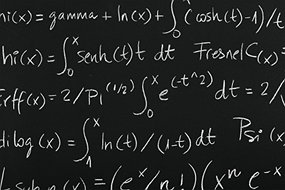 hi(x) = gamma + ln(x) + ∫₀ˣ (cosh(t)-1)/t
hi(x) = ∫₀ˣ senh(t)t dt FresnelC(x) =
Erff(x) = 2/Pi^(1/2) ∫₀ˣ e^(-t^2) dt = 2/
dilog(x) = ∫₁ˣ ln(t)/(1-t) dt Psi(x)
(x) = (eˣ/n!) (xⁿ e⁻ˣ